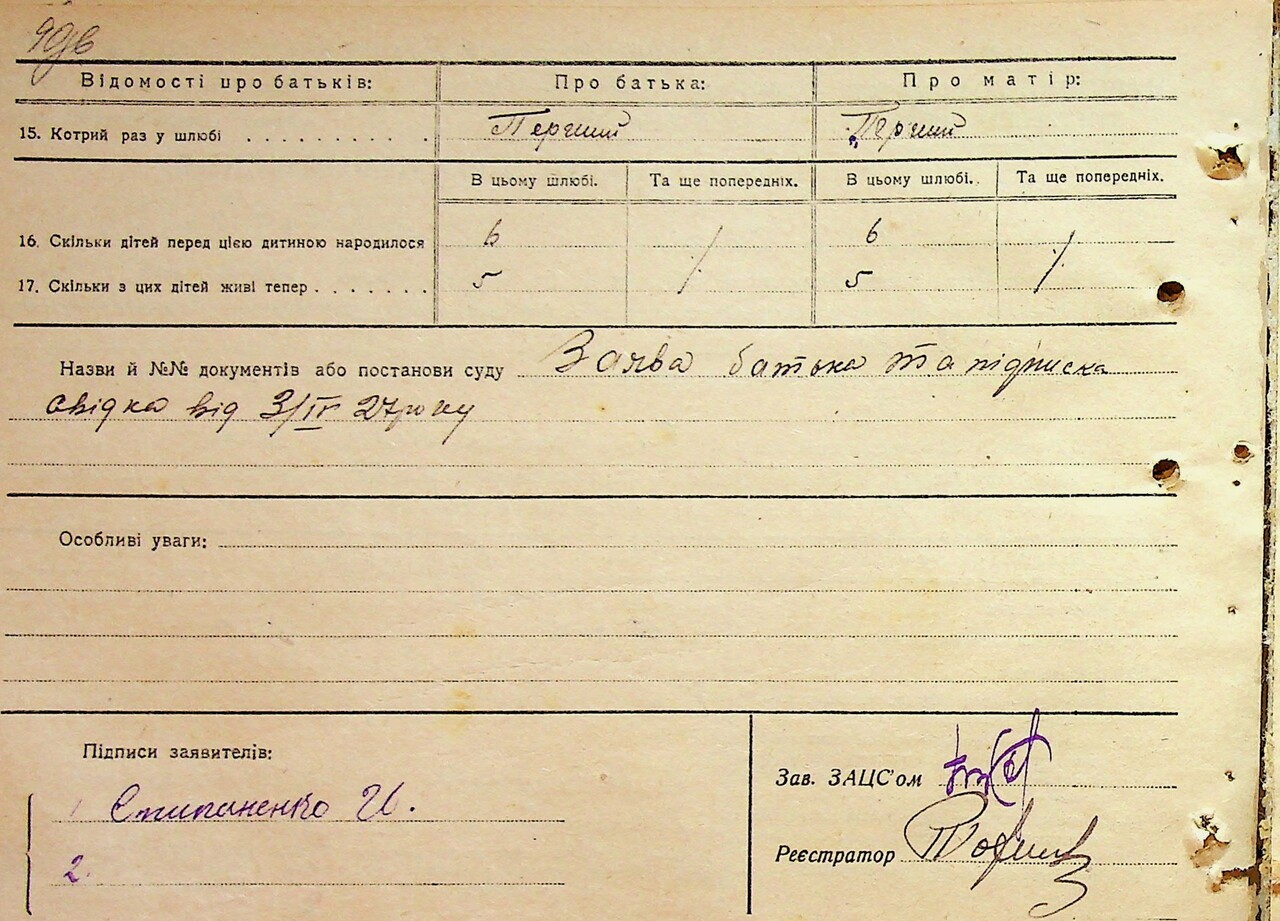 Відомості про батьків: Про батька: Про матір:
15. Котрий раз у шлюбі . . . . . . . . . . . Перший Перший
В цьому шлюбі. Та ще попередніх. В цьому шлюбі. Та ще попередніх.
16. Скільки дітей перед цією дитиною народилося 6 / 6 /
17. Скільки з цих дітей живі тепер . . . . . . . 5 5
Назви й №№ документів або постанови суду Заява батька та підписка
свідка від 3/IV 27 року
Особливі уваги:
Підписи заявителів:
Зав. ЗАЦС'ом
1 Стипаненко И.
Реєстратор
2.